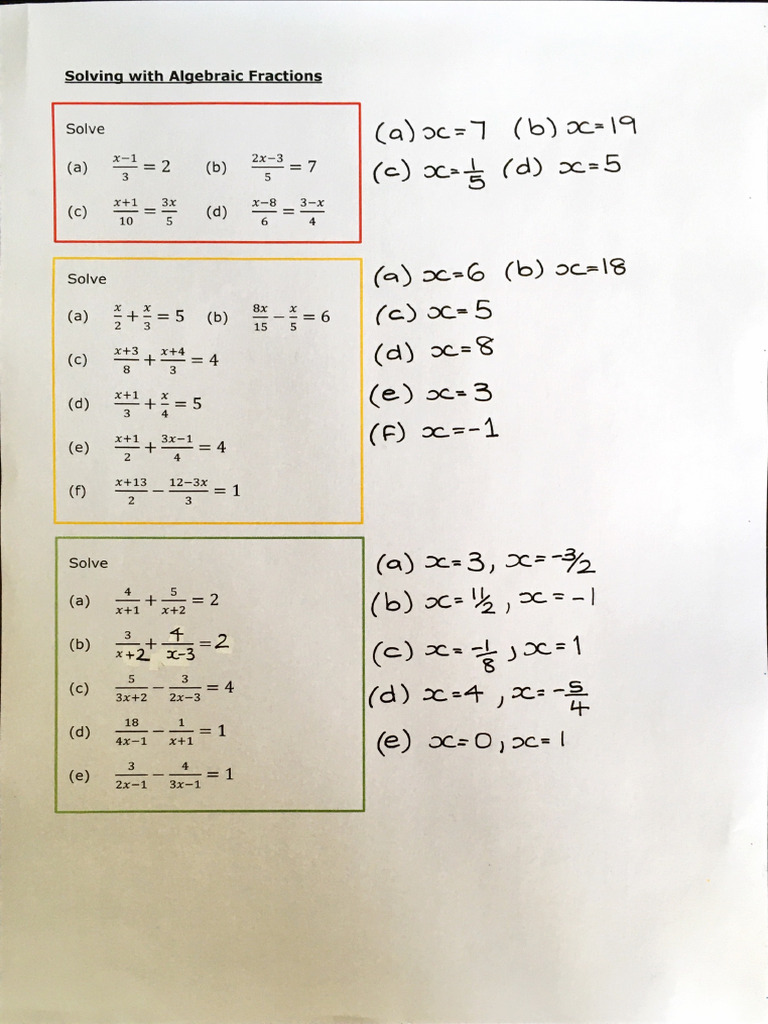 Solving with Algebraic Fractions
Solve
(a) x−1/3 = 2 (b) 2x−3/5 = 7
(c) x+1/10 = 3x/5 (d) x−8/6 = 3−x/4
(a) x=7 (b) x=19
(c) x=1/5 (d) x=5
Solve
(a) x/2 + x/3 = 5 (b) 8x/15 − x/5 = 6
(c) x+3/8 + x+4/3 = 4
(d) x+1/3 + x/4 = 5
(e) x+1/2 + 3x−1/4 = 4
(f) x+13/2 − 12−3x/3 = 1
(a) x=6 (b) x=18
(c) x=5
(d) x=8
(e) x=3
(f) x=-1
Solve
(a) 4/x+1 + 5/x+2 = 2
(b) 3/x+2 + 4/x-3 = 2
(c) 5/3x+2 − 3/2x−3 = 4
(d) 18/4x−1 − 1/x+1 = 1
(e) 3/2x−1 − 4/3x−1 = 1
(a) x=3, x=-3/2
(b) x=11/2, x=-1
(c) x=-1/8, x=1
(d) x=4, x=-5/4
(e) x=0, x=1